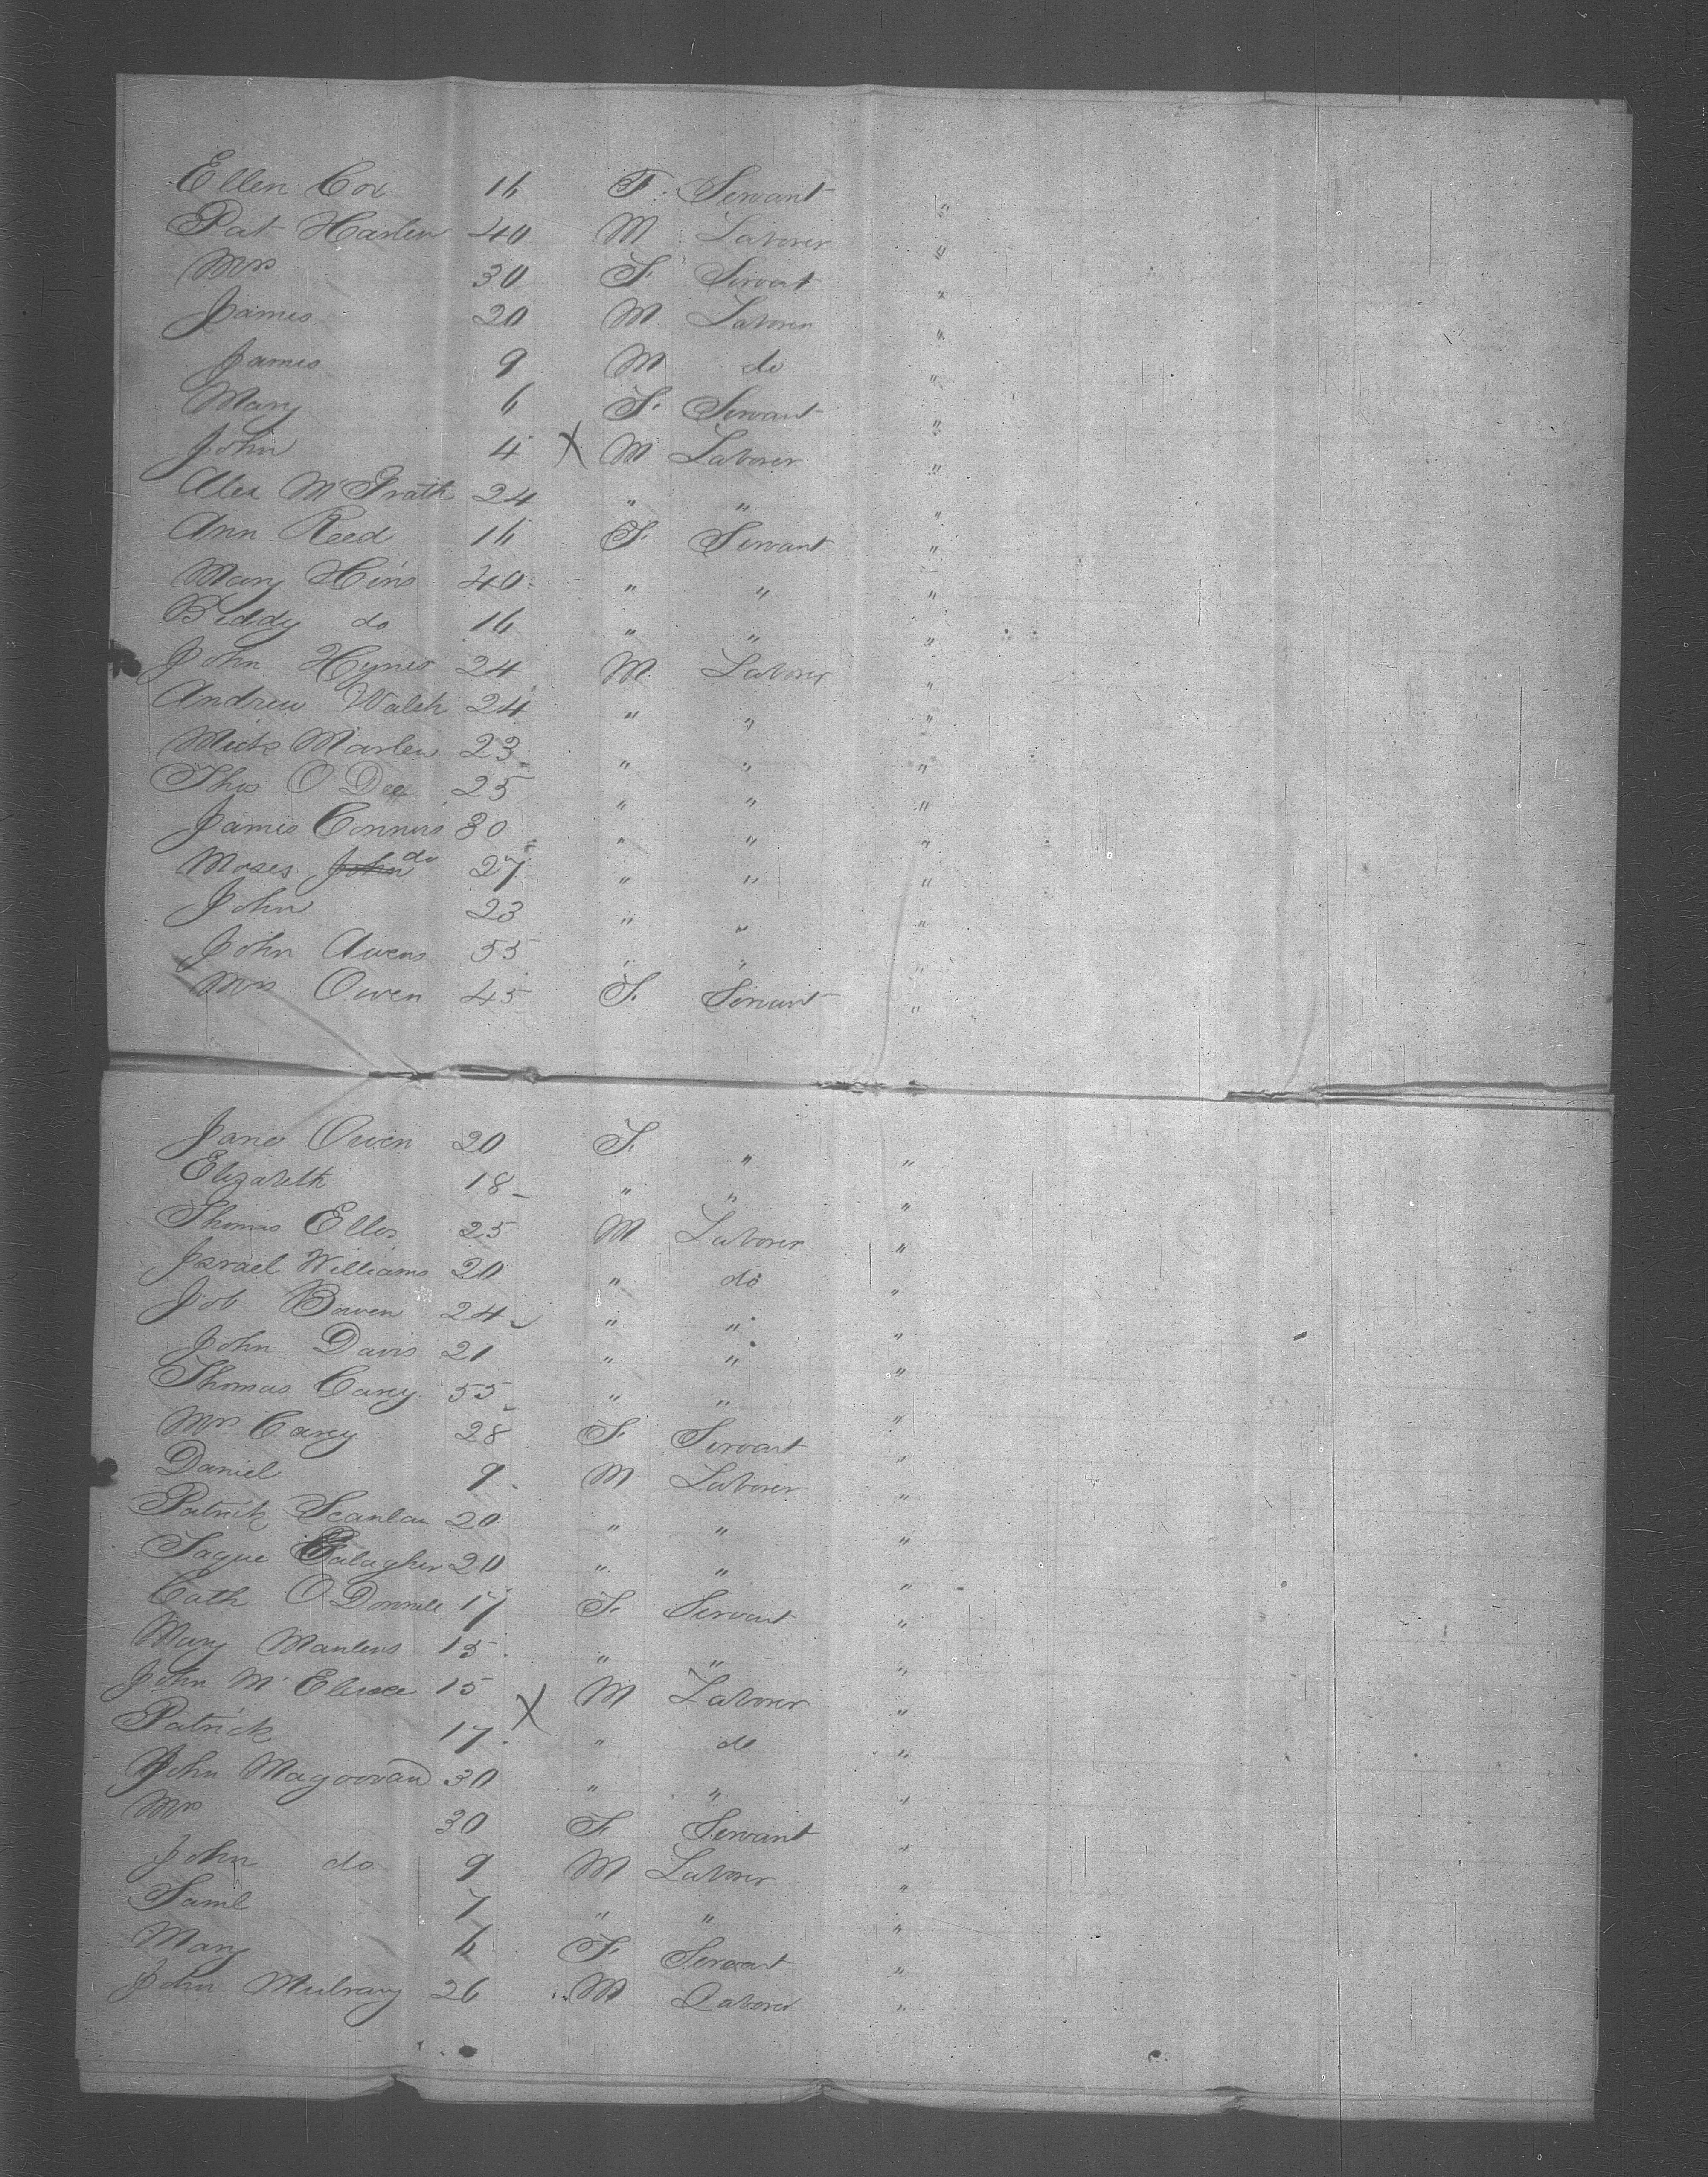 Ellen Cox 16 F. Servant "
Pat Harlen 40 M Laborer "
Mrs 30 F Servant "
James 20 M Laborer "
James 9 M do "
Mary 6 F. Servant "
John 4 X M Laborer "
Alex McGrath 24 " " "
Ann Reed 16 F Servant "
Mary Hins 40 " " "
Biddy do 16 " " "
John Hynes 24 M Laborer "
Andrew Walsh 24 " " "
Mick Marlen 23 " " "
Thos O Dea 25 " " "
James Connors 30 " " "
Moses John do 27 " " "
John 23 " " "
John Awens 55 " " "
Mrs Owen 45 F. Servant "
Jane Owen 20 F " "
Elizabeth 18 " " "
Thomas Ellis 25 M Laborer "
Israel Williams 20 " do "
Job Bowen 24 " " "
John Davis 21 " " "
Thomas Carey 55 " " "
Mrs Carey 28 F Servant "
Daniel 9 M Laborer "
Patrick Scanlan 20 " " "
Galagher 20 " " "
Cath O Donnell 17 F. Servant "
Mary 15 " " "
John Mc 15 X M Laborer "
Patrick 17 " do "
John Magoovan 30 " " "
Mrs 30 F Servant "
John do 9 M Laborer "
Saml 7 " " "
Mary 6 F Servant "
John Mulrany 26 M Laborer "